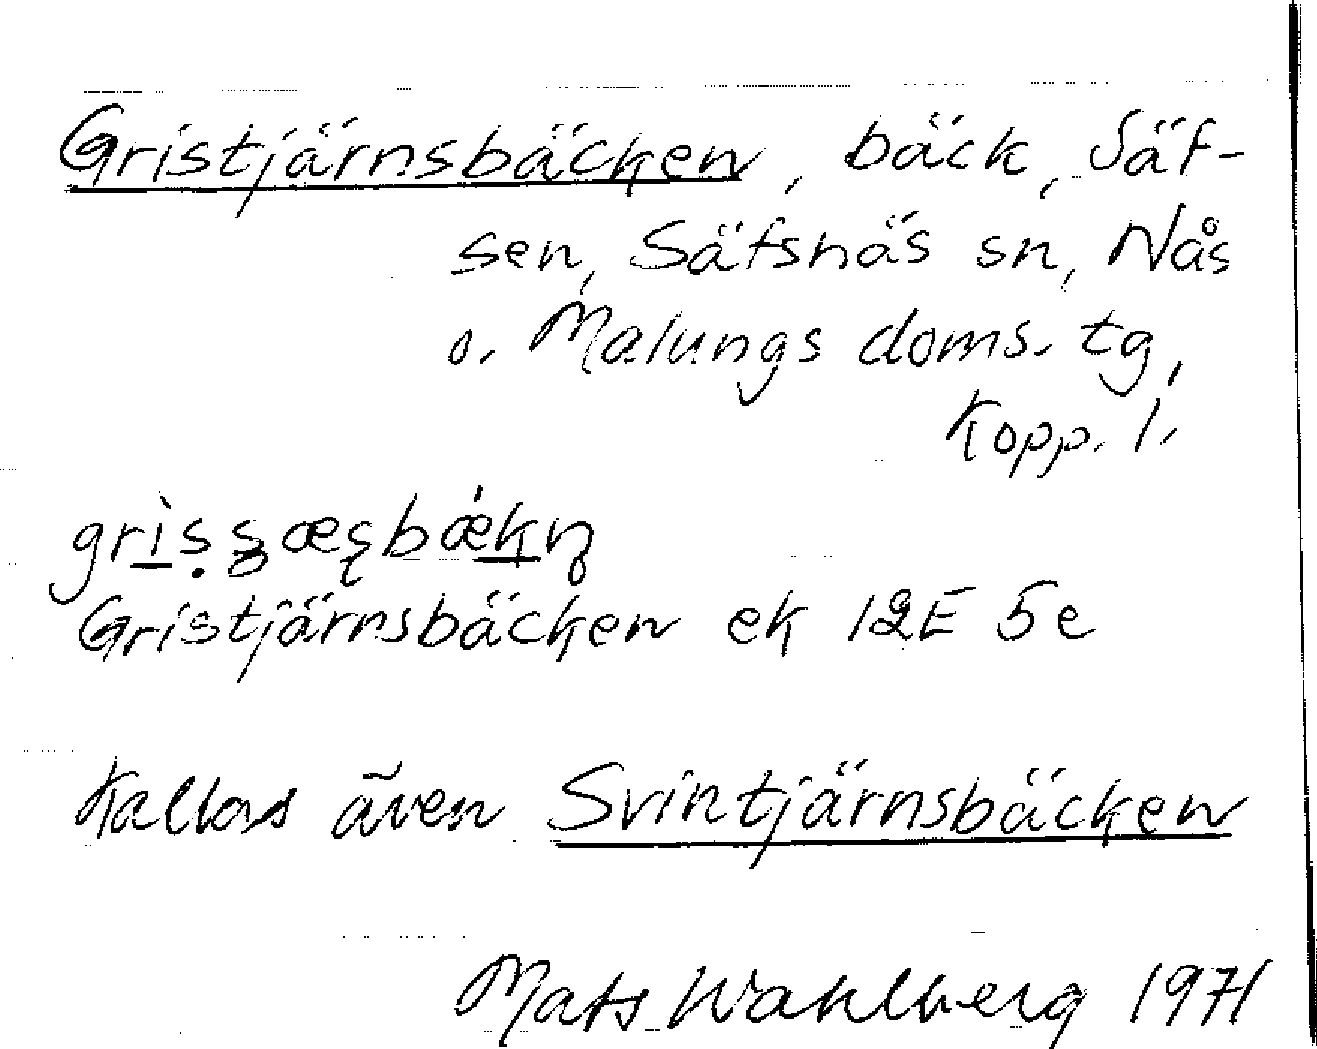 Gristjärnsbäcken, bäck, Säf-
sen, Säfsnäs sn, Nås
o. Malungs doms. tg,
Kopp. l.
Gristjärnsbäcken ek 12E 5e
Kallas även Svintjärnsbäcken
Mats Wahlberg 1971